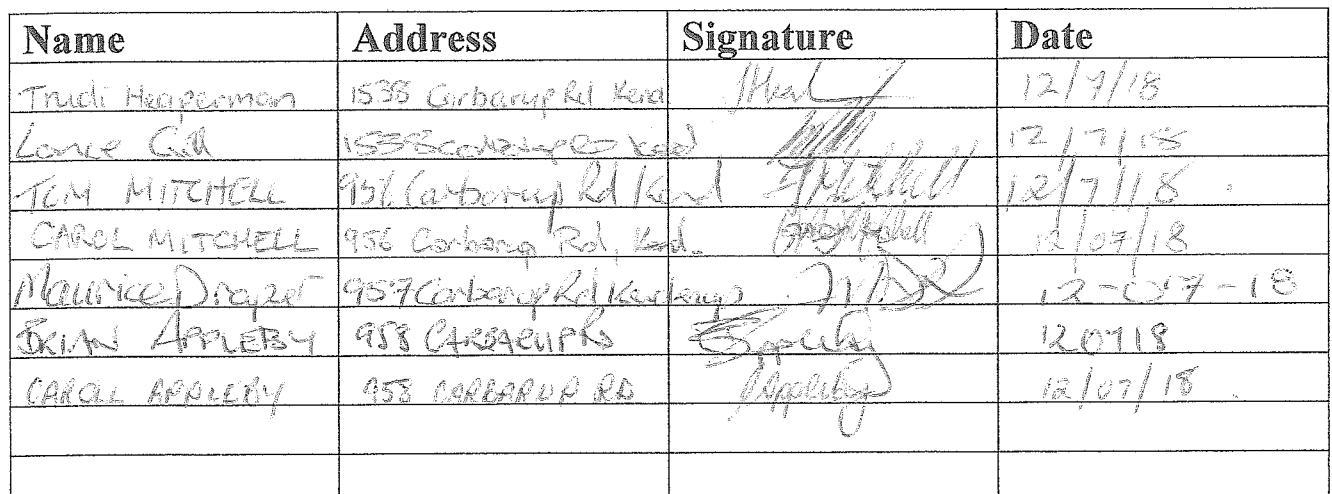 Name Address Signature Date
Trudi Heaperman 1538 Carbarup Rd Kend 12/7/18
Lance Gill 1538 Kend 12/7/18
TOM MITCHELL 956 Carbarup Rd Kend T Mitchell 12/7/18
CAROL MITCHELL 956 Carbarup Rd, Kend. 12/07/18
Maurice Draper 957 Carbarup Rd Kendenup 12-07-18
BRIAN APPLEBY 958 CARBARUP RD BAppleby 120718
CAROLL APPLEBY 958 CARBARUP RD CAppleby 12/07/18